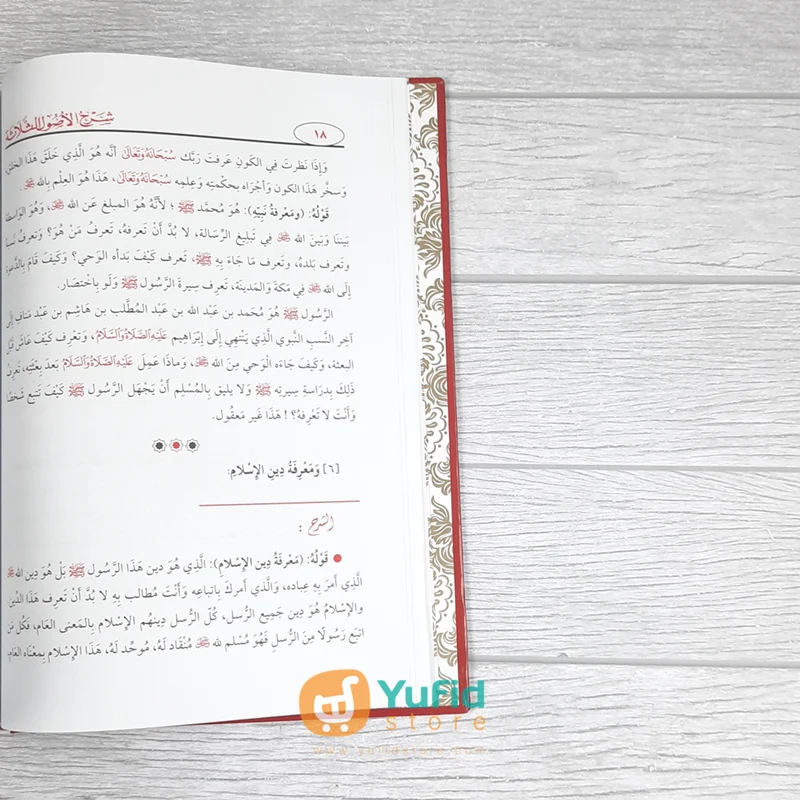 شرح الأصول الثلاثة
١٨
وَإِذَا نَظرتَ فِي الكَونِ عَرفتَ رَبَّك سُبْحَانَهُ وَتَعَالَى أنَّه هُوَ الَّذِي خَلَقَ هَذَا الخلق،
وَسخَّر هَذَا الكون وَأَجْرَاه بحكمتِهِ وَعِلمِهِ سُبْحَانَهُ وَتَعَالَى، هَذَا هُوَ العِلْم بِالله ﷻ.
قَوْلُهُ: (وَمَعْرفةُ نَبِيِّهِ): هُوَ مُحمَّد ﷺ ؛ لأنَّهُ هُوَ المبلغ عَن الله ﷻ، وَهُوَ الوَاسِطة
بيننَا وَبَينَ الله ﷻ فِي تَبليغ الرِّسالة، لا بُدَّ أَنْ تَعرفهُ، تَعرفُ مَنْ هُوَ؟ وَتعرفُ نَسبه
وَتعرف بَلدهُ، وَتعرف مَا جَاءَ بِهِ ﷺ، تَعرف كَيْفَ بَدأه الوَحي؟ وَكيفَ قَامَ بِالدَّعوة
إِلَى الله ﷻ فِي مَكةَ وَالمَدِينَة، تَعرِف سِيرةَ الرَّسُول ﷺ وَلَو بِاخْتصَار.
الرَّسُول ﷺ هُوَ مُحمد بن عَبد الله بن عَبد المُطَّلب بن هَاشِم بن عَبد مَناف إِلَى
آخِر النَّسب النَّبوي الَّذِي يَنْتهِي إِلَى إِبْرَاهيم عَلَيْهِ الصَّلَاةُ وَالسَّلَامُ، وَتعْرف كَيْفَ عَاشَ قَبل
البعثة، وَكَيفَ جَاءَه الوَحي مِنَ الله ﷻ، وَمَاذا عَمِلَ عَلَيْهِ الصَّلَاةُ وَالسَّلَامُ بَعدَ بِعْثَتِهِ، تَعرِفُ
ذَلِكَ بِدرَاسةِ سِيرتِهِ ﷺ وَلا يليق بِالمُسْلم أَنْ يَجْهَل الرَّسُول ﷺ كَيْفَ تَتبع شَخصًا
وَأَنْتَ لا تَعْرِفهُ؟ ! هَذَا غَير مَعقُول.
[٦] وَمَعْرِفَةُ دِينِ الإِسْلَامِ:
الشرح :
● قَوْلُهُ: (مَعْرِفَةُ دِينِ الإِسْلَامِ): الَّذِي هُوَ دين هَذَا الرَّسُول ﷺ بَلْ هُوَ دِين الله ﷻ
الَّذِي أَمرَ بِهِ عِباده، وَالَّذي أَمركَ بِاتباعِهِ وَأَنْتَ مُطالب بِهِ لا بُدَّ أَنْ تَعرف هَذَا الدِّين
وَالإِسْلامُ هُوَ دِين جَمِيع الرُّسل، كُلّ الرُّسل دِينهم الإِسْلام بِالمَعنى العَام، فَكُل مَن
اتبعَ رَسُولًا مِنَ الرُّسل فَهُوَ مُسْلم لله ﷻ مُنْقَاد لَهُ، مُوحِّد لَهُ، هَذَا الإِسْلام بِمعْنَاه العَام،
Yufid
store
www.yufidstore.com